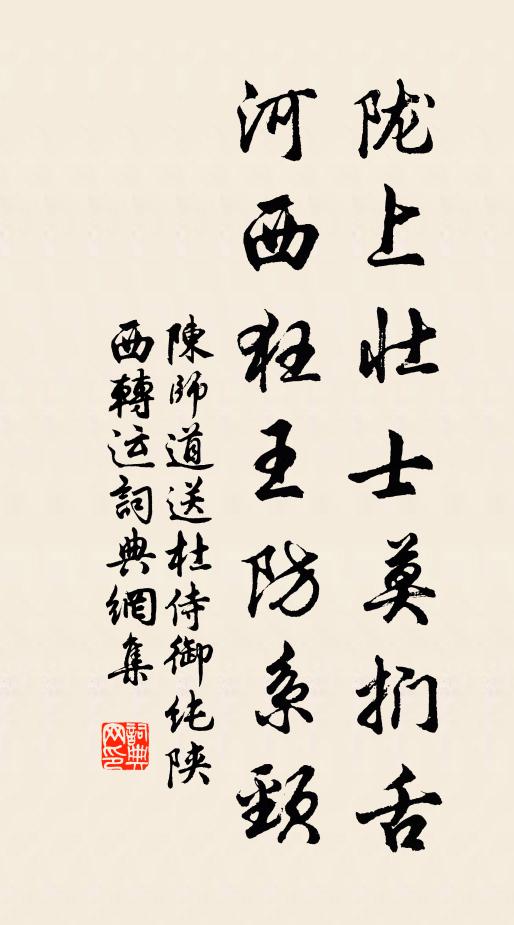 陇上壮士莫扪舌
河西狂王防系頸
陳师道送杜侍御纯陕
西轉运詞典網集
詞典
网印